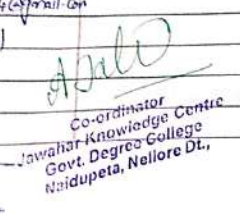 Co-ordinator
Jawahar Knowledge Centre
Govt. Degree College
Naidupeta, Nellore Dt.,